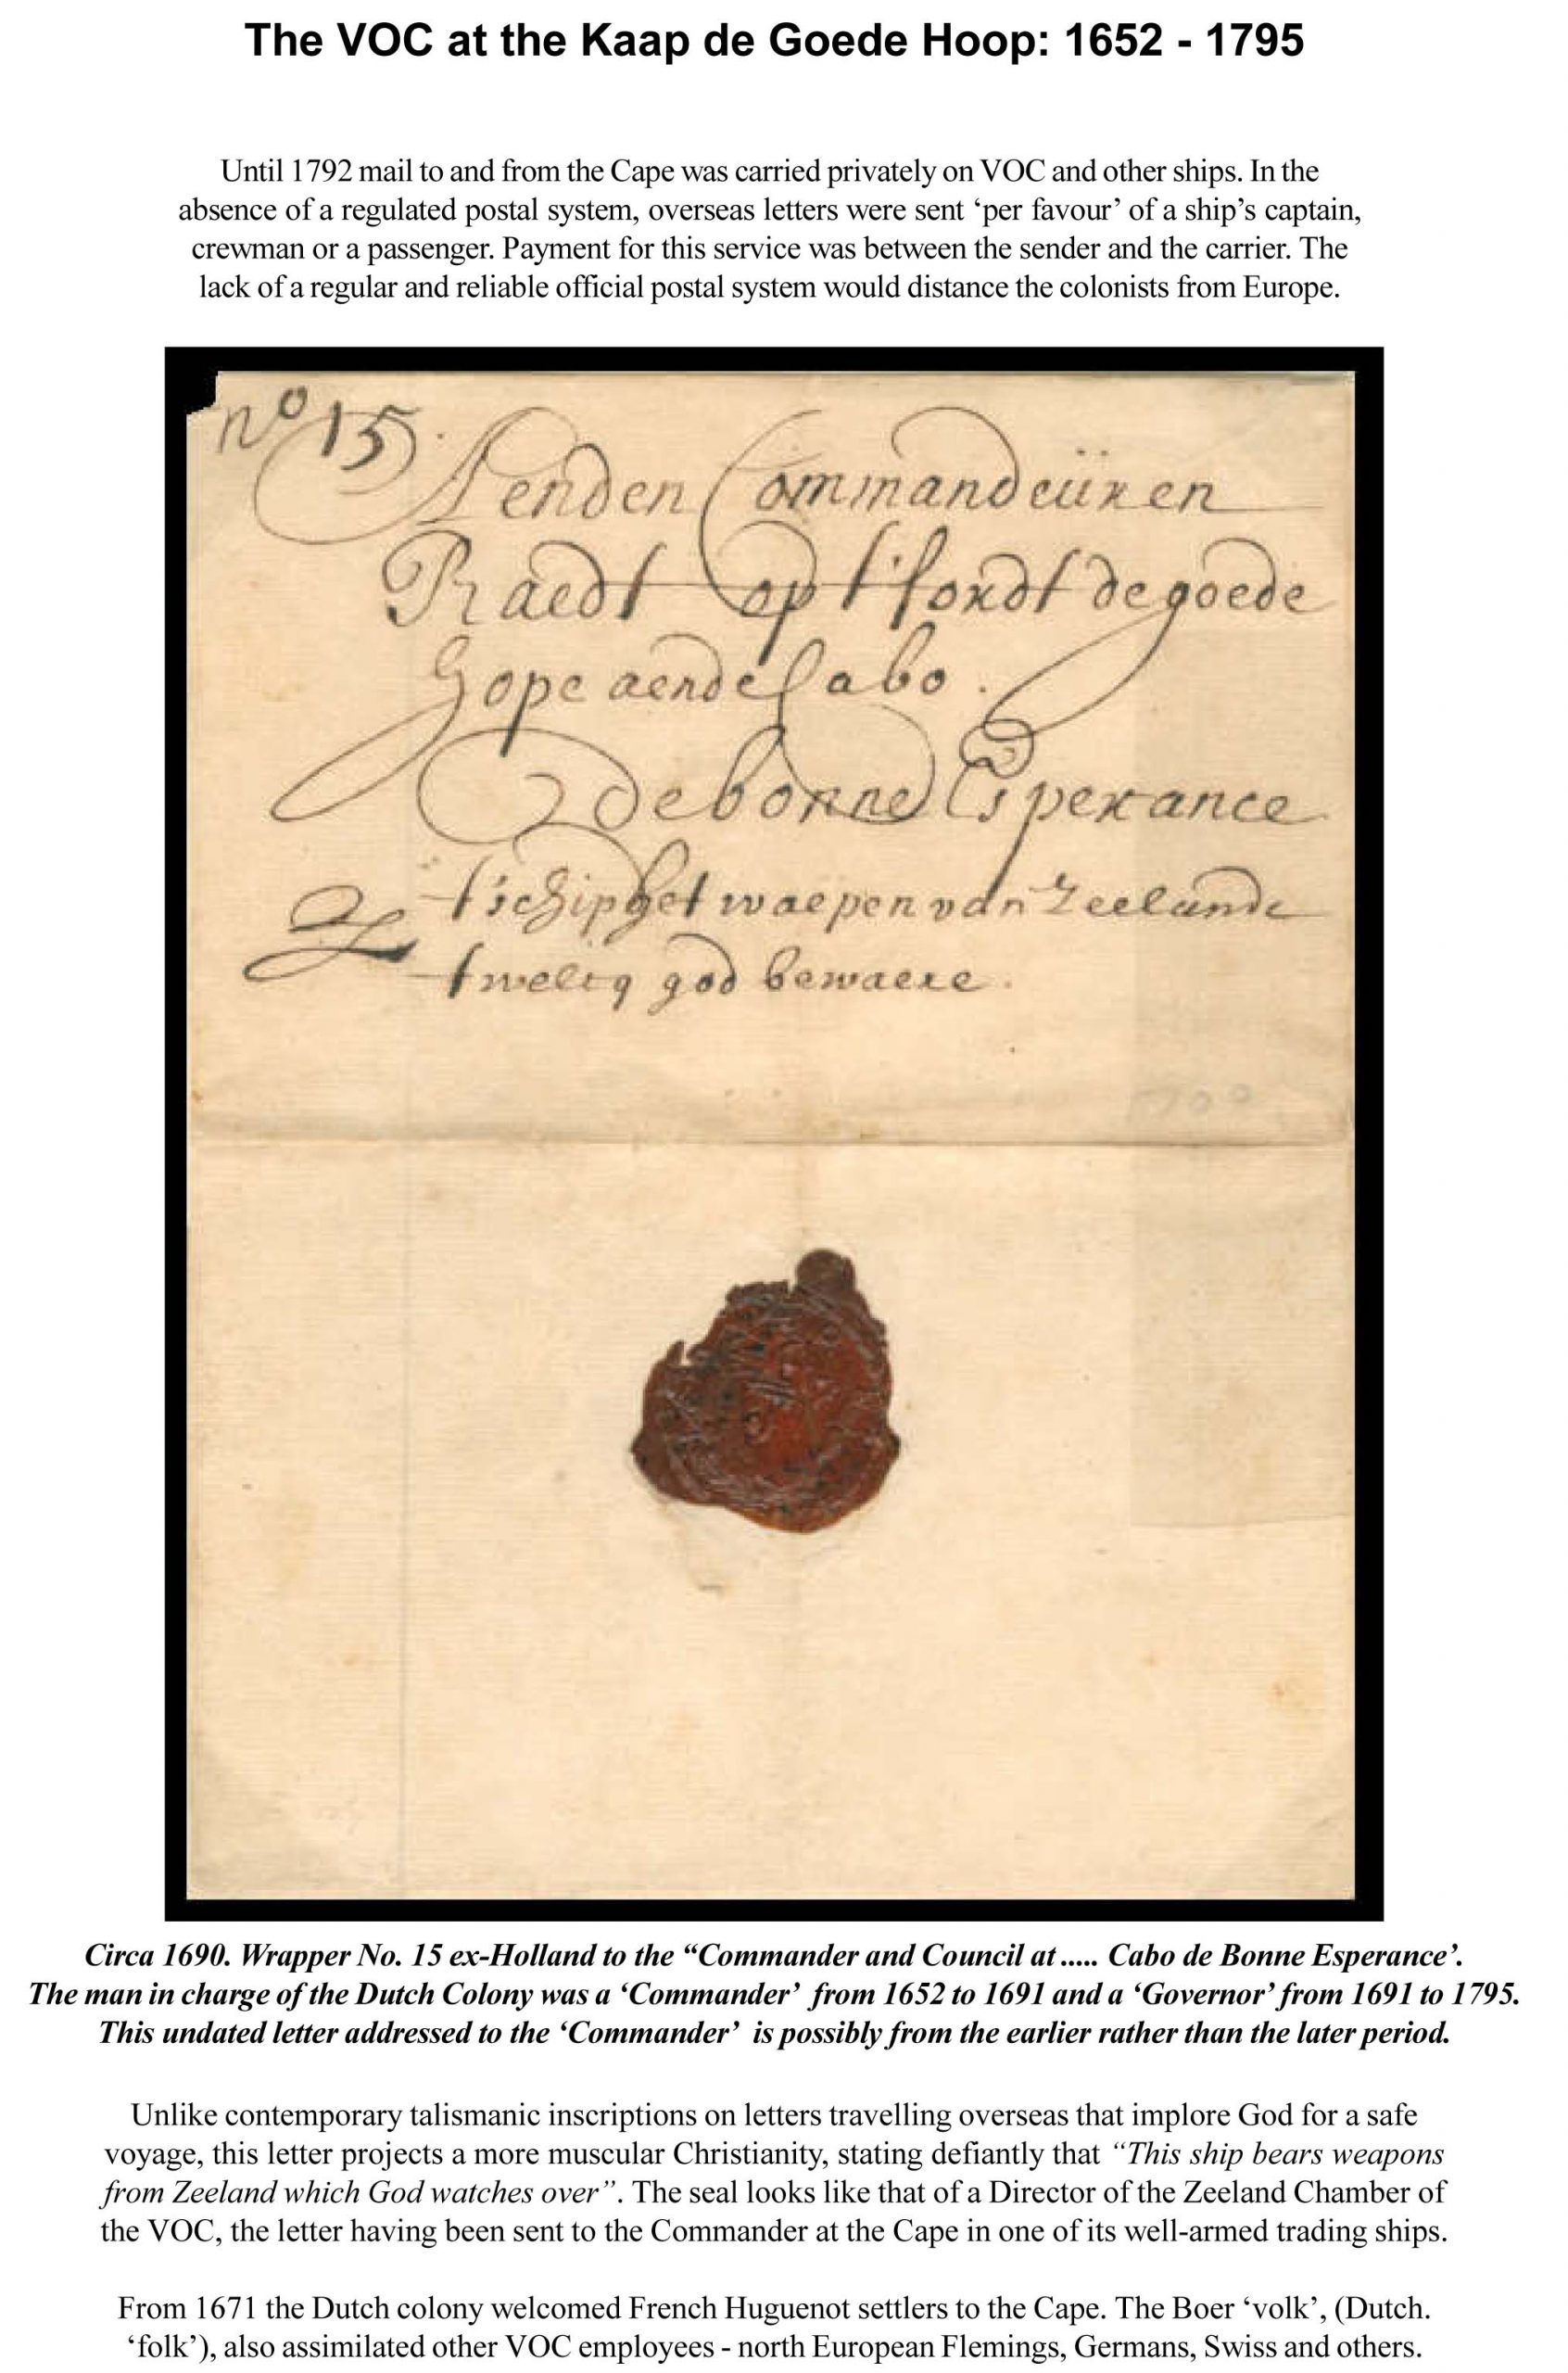 The VOC at the Kaap de Goede Hoop: 1652 - 1795
Until 1792 mail to and from the Cape was carried privately on VOC and other ships. In the
absence of a regulated postal system, overseas letters were sent ‘per favour’ of a ship’s captain,
crewman or a passenger. Payment for this service was between the sender and the carrier. The
lack of a regular and reliable official postal system would distance the colonists from Europe.
no 15.
Aenden Commandeür en
Raedt op t' fordt de goede
Hope aende Cabo.
De bonne Esperance
t'schip het waepen van Zeelande
twelcq god bewaere.
1700
Circa 1690. Wrapper No. 15 ex-Holland to the “Commander and Council at ..... Cabo de Bonne Esperance’.
The man in charge of the Dutch Colony was a ‘Commander’ from 1652 to 1691 and a ‘Governor’ from 1691 to 1795.
This undated letter addressed to the ‘Commander’ is possibly from the earlier rather than the later period.
Unlike contemporary talismanic inscriptions on letters travelling overseas that implore God for a safe
voyage, this letter projects a more muscular Christianity, stating defiantly that “This ship bears weapons
from Zeeland which God watches over”. The seal looks like that of a Director of the Zeeland Chamber of
the VOC, the letter having been sent to the Commander at the Cape in one of its well-armed trading ships.
From 1671 the Dutch colony welcomed French Huguenot settlers to the Cape. The Boer ‘volk’, (Dutch.
‘folk’), also assimilated other VOC employees - north European Flemings, Germans, Swiss and others.